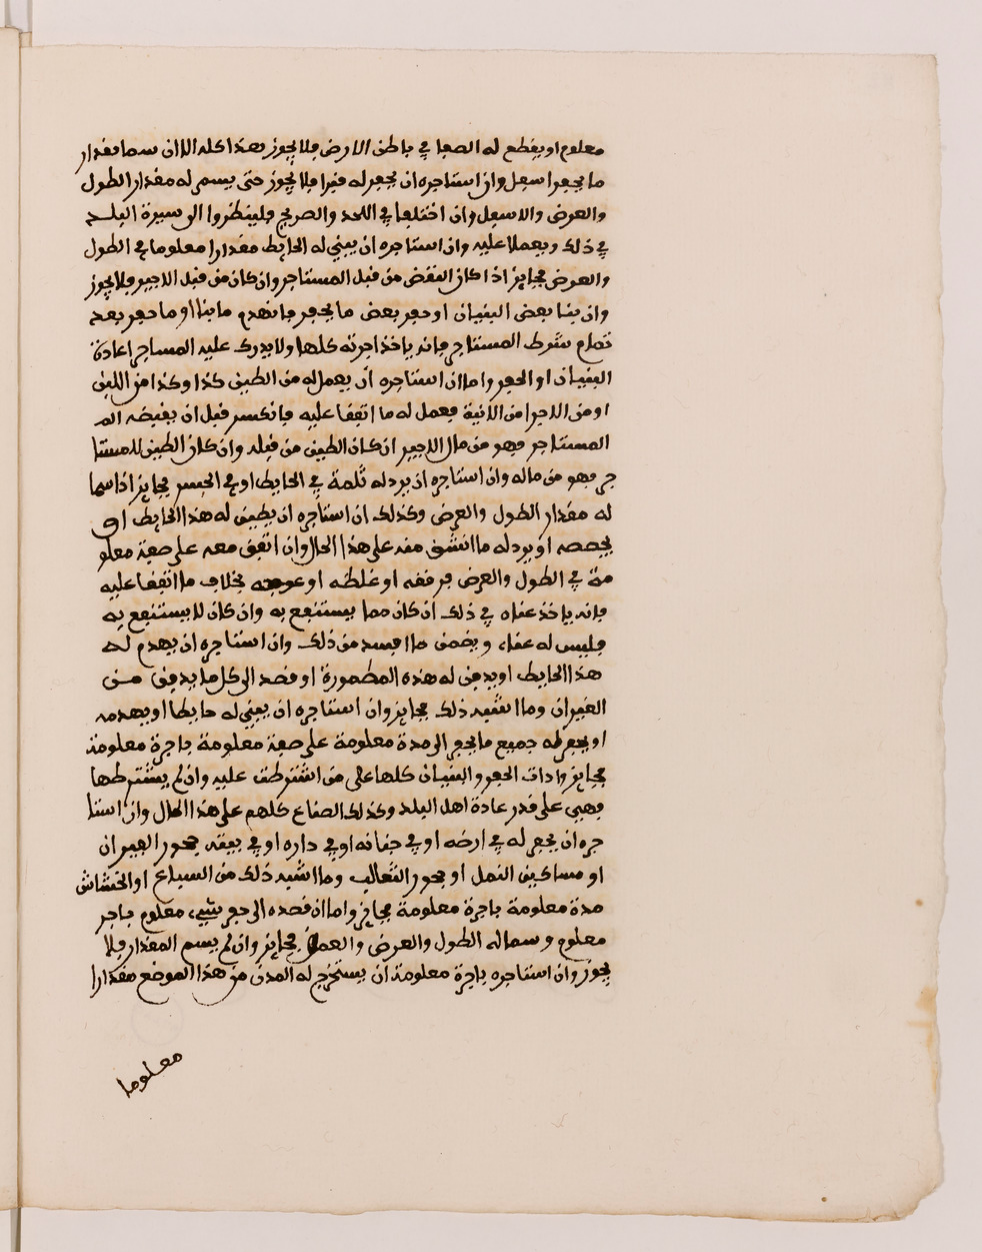 معلوم او يقطع له الصفا في باطن الارض فلا يجوز هذا كله الا ان سما مقدار
ما يحفر اسفل وان استاجره ان يحفر له قبرا فلا يجوز حتى يسمي له مقدار الطول
والعرض والاسفل وان اختلفا في اللحد والضريح فلينظروا الى سيرة البلد
في ذلك ويعملا عليه وان استاجره ان يبني له الحايط مقدارا معلوما في الطول
والعرض فجايز اذا كان النقض من قبل المستاجر وان كان من قبل الاجير فلا يجوز
وان بنا بعض البنيان او حفر بعض ما يحفر فانهدم ما بنا او ما حفر بعد
تمام شرط المستاجر فانه ياخذ اجرته كلها ولا يدرك عليه المساجر اعادة
البنيان او الحفر واما ان استاجره ان يعمل له من الطين كذا وكذا من اللبن
او من الاجر او من الانية فعمل له ما اتفقا عليه فانكسر قبل ان يقبضه الم
المستاجر فهو من مال الاجير ان كان الطين من قبله وان كان الطين للمستا
جر فهو من ماله وان استاجره ان يرد له ثلمة في الحايط او في الجسر فجايز اذا سما
له مقدار الطول والعرض وكذلك ان استاجره ان يطين له هذا الحايط او
يجصصه او يرد له ما انشق منه على هذا الحال وان اتفق معه على صفة معلو
مة في الطول والعرض فرققه او غلظه او عوجه بخلاف ما اتفقا عليه
فانه ياخذ عناه في ذلك ان كان مما يستنفع به وان كان لا يستنفع به
فليس له عناء ويضمن ما افسد من ذلك وان استاجره ان يهدم له
هذا الحايط او يدفن له هذه المطمورة او قصد الى كل ما يدفن من
الغيران وما اشبه ذلك فجايز وان استاجره ان يبني له حايطا او يهدمه
او يحفر له جميع ما يحفر الى مدة معلومة على صفة معلومة باجرة معلومة
فجايز وادات الحفر والبنيان كلها على من اشترطت عليه وان لم يشترطها
فهي على قدر عادة اهل البلد وكذلك الصناع كلهم على هذا الحال وان استا
جره ان يحفر له في ارضه او في جنانه او في داره او في بيته جحور الفيران
او مساكين النمل او جحور الثعالب وما اشبه ذلك من السباع او الخشاش
مدة معلومة باجرة معلومة فجايز واما ان قصده الى حفر شيء معلوم باجر
معلوم وسما له الطول والعرض والعمق فجايز وان لم يسم المقدار فلا
يجوز وان استاجره باجرة معلومة ان يستخرج له المدن من هذا الموضع مقدارا
معلوما